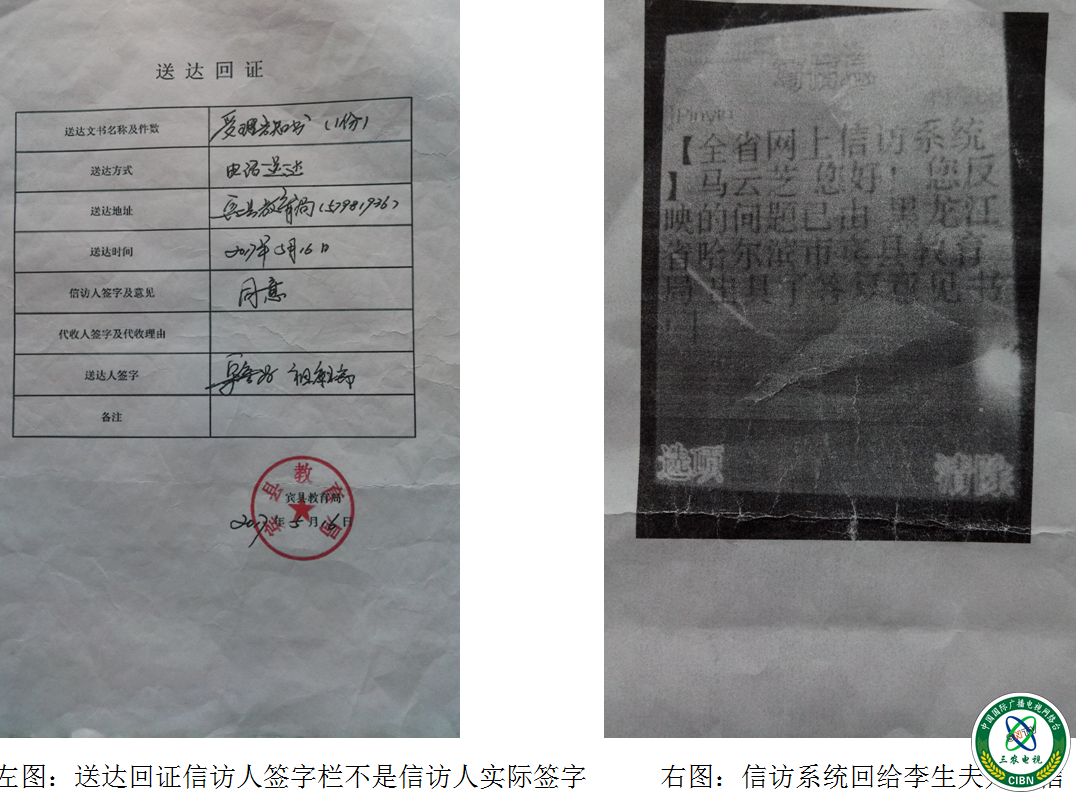 送达回证
送达文书名称及件数 受理告知书（1份）
送达方式 电话送达
送达地址 宾县教育局（57981926）
送达时间 2017年5月16日
信访人签字及意见 同意
代收人签字及代收理由
送达人签字
备注
宾县教育局
宾县教育局
2017年5月16日
Pinyin
【全省网上信访系统
】马云芝您好！您反
映的问题已由黑龙江
省哈尔滨市宾县教育
局出具了答复意见书
选项 清除
左图：送达回证信访人签字栏不是信访人实际签字
右图：信访系统回给李生夫
中国国际广播电视网络台
三农电视
CIBN